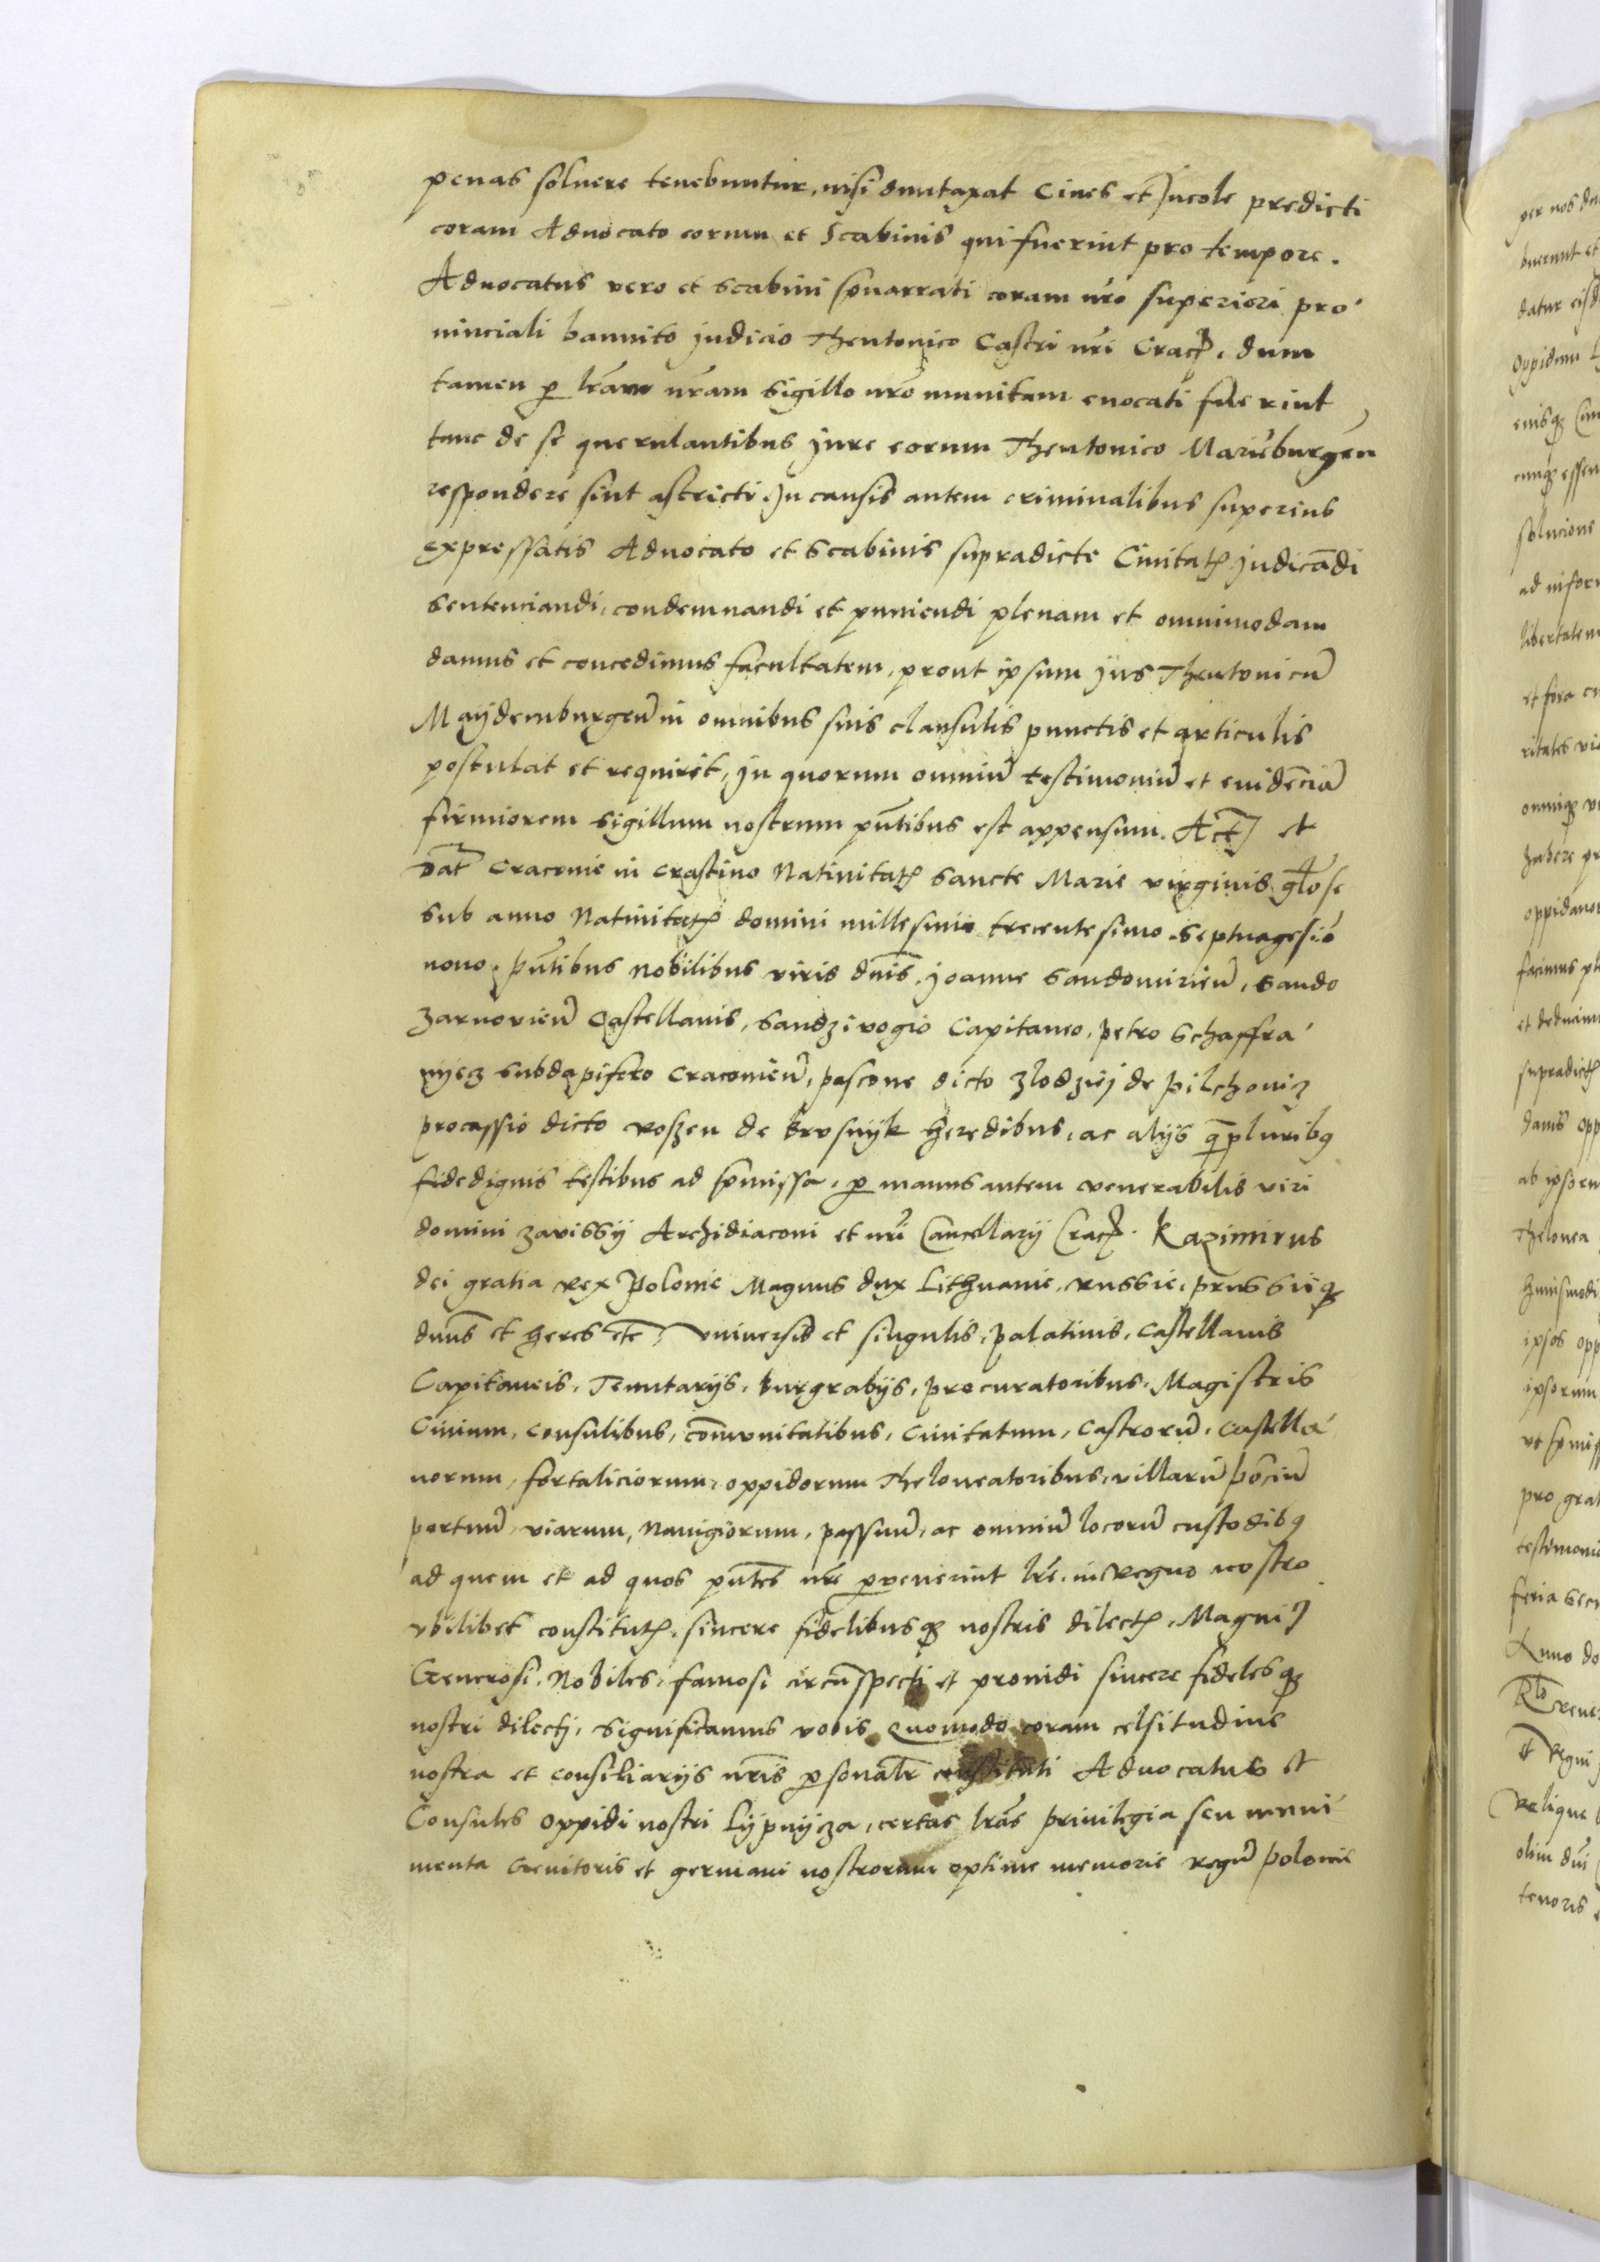 penas soluere tenebuntur, nisi duntaxat Ciues et Incole predicti
coram Aduocato eorum et Scabinis qui fuerint pro tempore.
Aduocatus vero et scabini pnarrati coram nro superiori pro
uinciali bannito judicio Theutonico Castri nri Crac, dum
tamen p lram nram sigillo nro munitam euocati fuerint
tunc de se querulantibus jure eorum Theutonico
respondere sint astricti. In causis autem criminalibus superius
expressatis Aduocato et scabinis supradicte Ciuitatis judicadi
sentenciandi, condemnandi et puniendi plenam et omnimodam
damus et concedimus facultatem, prout ipsum jus Theutonicu
Maydemburgen in omnibus suis clausulis punctis et articulis
postulat et requirit, In quorum omniu testimoniu et euidencia
firmiorem sigillum nostrum pntibus est appensum. Act et
Dat Cracouie in crastino Natiuitatis sancte Marie virginis glose
sub anno Natiuitatis domini millesimo trecentesimo septuagesio
nono, pntibus nobilibus viris dnis, Joanne sandomirien, sando
zarnouien Castellanis, sandziuogio Capitaneo, petro schaffra
nyecz subdapifero Cracouien, pascone dicto zlodziej de pilchouicz
procassio dicto roszen de krosnyk heredibus, ac alijs qpluribus
fidedignis testibus ad pmissa, p manus autem venerabilis viri
domini zauissij Archidiaconi et nri Cancellarij Crac. Kazimirus
dei gratia rex Polonie Magnus dux Lithuanie, russie, prussieq
dnus et heres etc, vniuersis et singulis, palatinis, Castellanis
Capitaneis, Tenutarijs, burgrabijs, procuratoribus, Magistris
Ciuium, consulibus, comunitatibus, Ciuitatum, Castroru, castella
norum, fortaliciorum, oppidorum Theloneatoribus, villaru pociu
portuu, viarum, nauigiorum, passuu, ac omniu locoru custodibus
ad quem et ad quos pntes nre peruenerint lre, in regno nostro
vbilibet constitutis, sincere fidelibusq nostris dilectis, Magnici
Generosi, Nobiles, famosi circuspecti et prouidi sincere fidelesq
nostri dilecti, significamus vobis Quomodo coram celsitudine
nostra et consiliarijs nris psonalr constituti Aduocatus et
Consules oppidi nostri Lypnycza, certas lras priuilegia seu muni
menta Genitoris et germani nostrorum optime memorie regu polonie